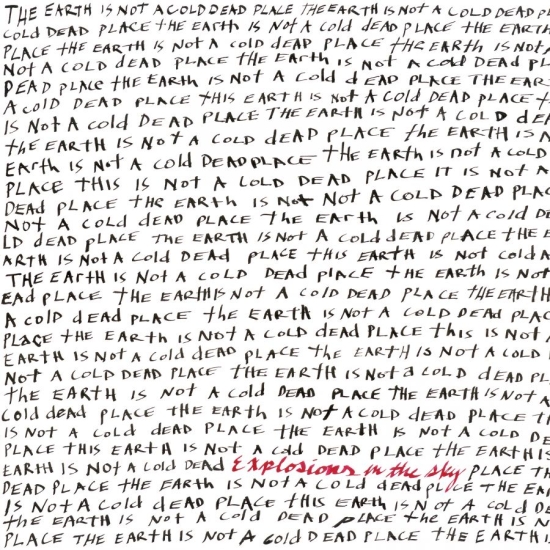 THE EARTH IS NOT A COLD DEAD PLACE THE EARTH IS NOT A COLD DEAD PL
COLD DEAD PLACE THE EARTH IS NOT A COLD DEAD PLACE THE EARTH
PLACE THE EARTH IS NOT A COLD DEAD PLACE THE EARTH IS NOT A
NOT A COLD DEAD PLACE THE EARTH IS NOT A COLD DEAD PL
DEAD PLACE THE EARTH IS NOT A COLD DEAD PLACE THE EAR
A COLD DEAD PLACE THIS EARTH IS NOT A COLD DEAD PLACE T
IS NOT A COLD DEAD PLACE THE EARTH IS NOT A COLD DEA
THE EARTH IS NOT A COLD DEAD PLACE THE EARTH IS N
EARTH IS NOT A COLD DEAD PLACE THE EARTH IS NOT A COLD
PLACE THIS IS NOT A COLD DEAD PLACE IT IS NOT A
DEAD PLACE THE EARTH IS NOT NOT A COLD DEAD PLAC
NOT A COLD DEAD PLACE THE EARTH IS NOT A COLD DE
LD DEAD PLACE THE EARTH IS NOT A COLD DEAD PLACE THE E
ARTH IS NOT A COLD DEAD PLACE THIS EARTH IS NOT COLD A
THE EARTH IS NOT A COLD DEAD PLACE THE EARTH IS NOT
EAD PLACE THE EARTH IS NOT A COLD DEAD PLACE THE EARTH
A COLD DEAD PLACE THE EARTH IS NOT A COLD DEAD PLAC
PLACE THE EARTH IS NOT A COLD DEAD PLACE THIS IS NOT A
EARTH IS NOT A COLD DEAD PLACE THE EARTH IS NOT A COLD
NOT A COLD DEAD PLACE THE EARTH IS NOT A COLD DEAD PL
THE EARTH IS NOT A COLD DEAD PLACE THE EARTH IS NOT A
COLD DEAD PLACE THE EARTH IS NOT A COLD DEAD PLACE T
IS NOT A COLD DEAD PLACE THE EARTH IS NOT A COLD DE
PLACE THIS EARTH IS NOT A COLD DEAD PLACE THE EARTH IS
EARTH IS NOT A COLD DEAD Explosions in the sky PLACE TH
DEAD PLACE THE EARTH IS NOT A COLD DEAD PLACE THE EAR
IS NOT A COLD DEAD PLACE THIS EARTH IS NOT A COLD DEA
THE EARTH IS NOT A COLD DEAD PLACE THE EARTH IS N
PLACE THE EARTH IS NOT A COLD DEAD PLACE THE EARTH I